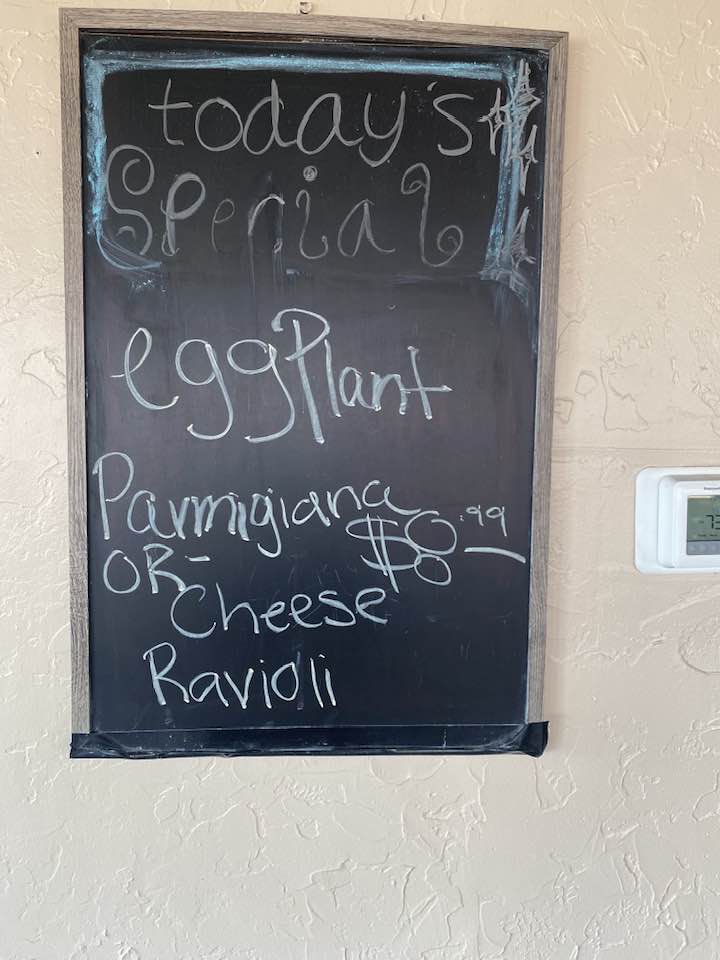 today's
Special
eggPlant
Parmigiana
$8.99
OR-
Cheese
Ravioli
73